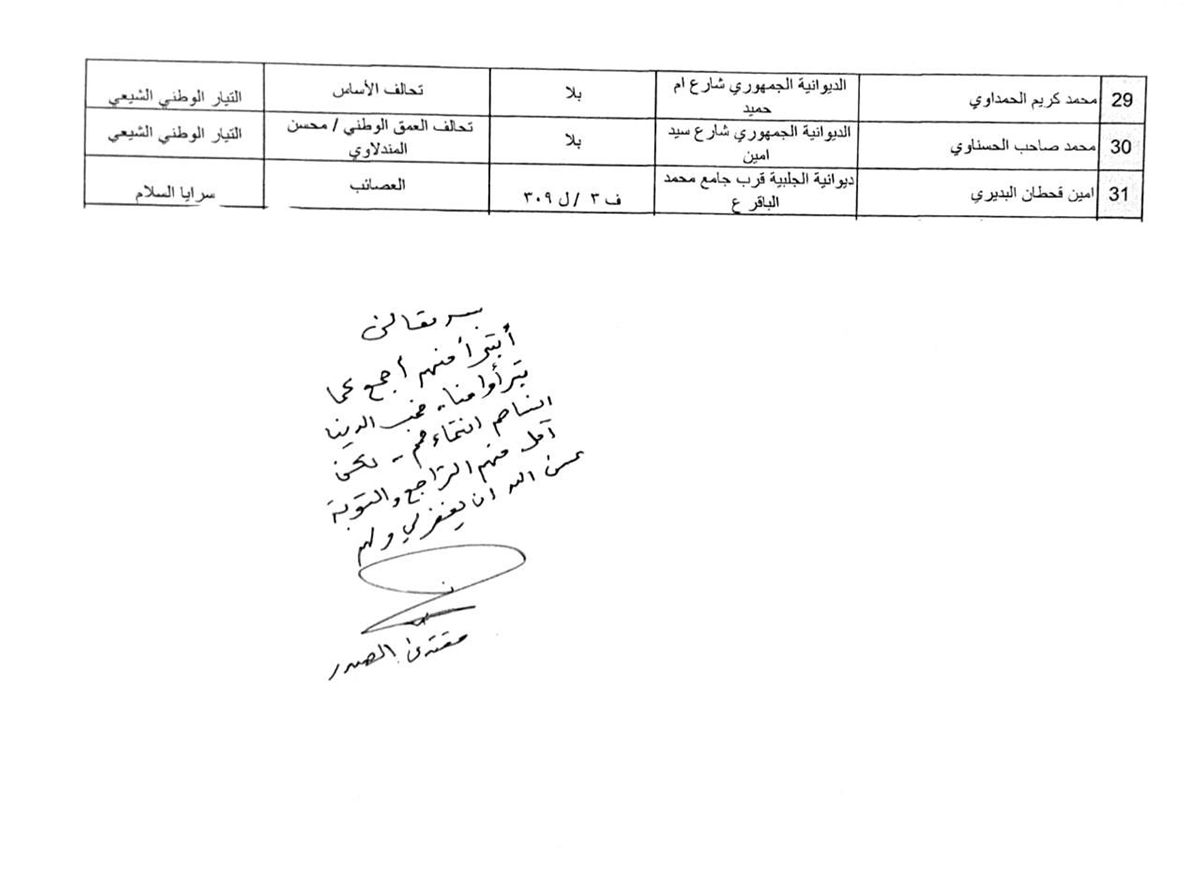 29 محمد كريم الحمداوي الديوانية الجمهوري شارع ام حميد بلا تحالف الأساس التيار الوطني الشيعي
30 محمد صاحب الحسناوي الديوانية الجمهوري شارع سيد امين بلا تحالف العمق الوطني / محسن المندلاوي التيار الوطني الشيعي
31 امين قحطان البديري ديوانية الجلبية قرب جامع محمد الباقر ع ف ٣ / ل ٣٠٩ العصائب سرايا السلام
بسمه تعالى
أتبرأ منهم أجمع كما
تبرأوا منا.. فحب الدنيا
أنساهم انتماءهم .. لكني
آمل منهم التراجع والتوبة
عسى الله ان يغفر لي ولهم
مقتدى الصدر